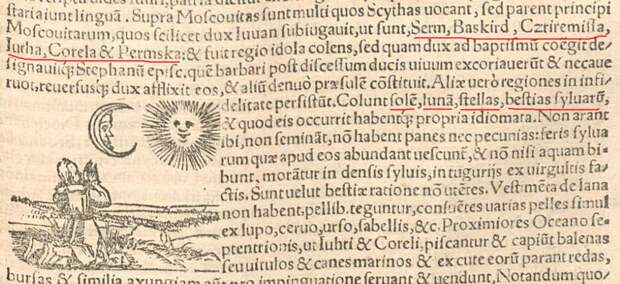 ſtaria iunt linguā. Supra Moſcouitas ſunt multi quos Scythas uocant, ſed parent principi
Moſcouitarum, quos ſcilicet dux Iuuan ſubiugauit, ut ſunt, Serm, Baskird, Czriremiſſa,
Iurha, Corela & Permska: & fuit regio idola colens, ſed quam dux ad baptiſmū coegit de-
ſignauitq́; Stephanū epiſc. quē barbari poſt diſceſſum ducis uiuum excoriauerūt & necaue
runt, reuerſusq́; dux afflixit eos, & aliū denuò præſulē cōſtituit. Aliæ uerò regiones in infi
delitate perſiſtūt. Colunt ſolē, lunā, ſtellas, beſtias ſyluarū,
& quod eis occurrit habentq́; propria idiomata. Non arant
ibi, non ſemināt, nō habent panes nec pecunias: feris ſylua
rum quæ apud eos abundant ueſcunt̃, & nō niſi aquam bi-
bunt, morātur in denſis ſyluis, in tugurijs ex uirgultis fa-
ctis. Sunt uelut beſtiæ ratione nō utētes. Veſtimēta de lana
non habent, pellib. teguntur, conſuētes uarias pelles ſimul
ex lupo, ceruo, urſo, ſabellis, &c. Proximiores Oceano ſe-
ptentrionis, ut Iuhri & Coreli, piſcantur & capiūt balenas
ſeu uitulos & canes marinos & ex cute eorū parant redas,
burſas & ſimilia, axungiam pro impinguatione ſeruant & uendunt. Notandum quo